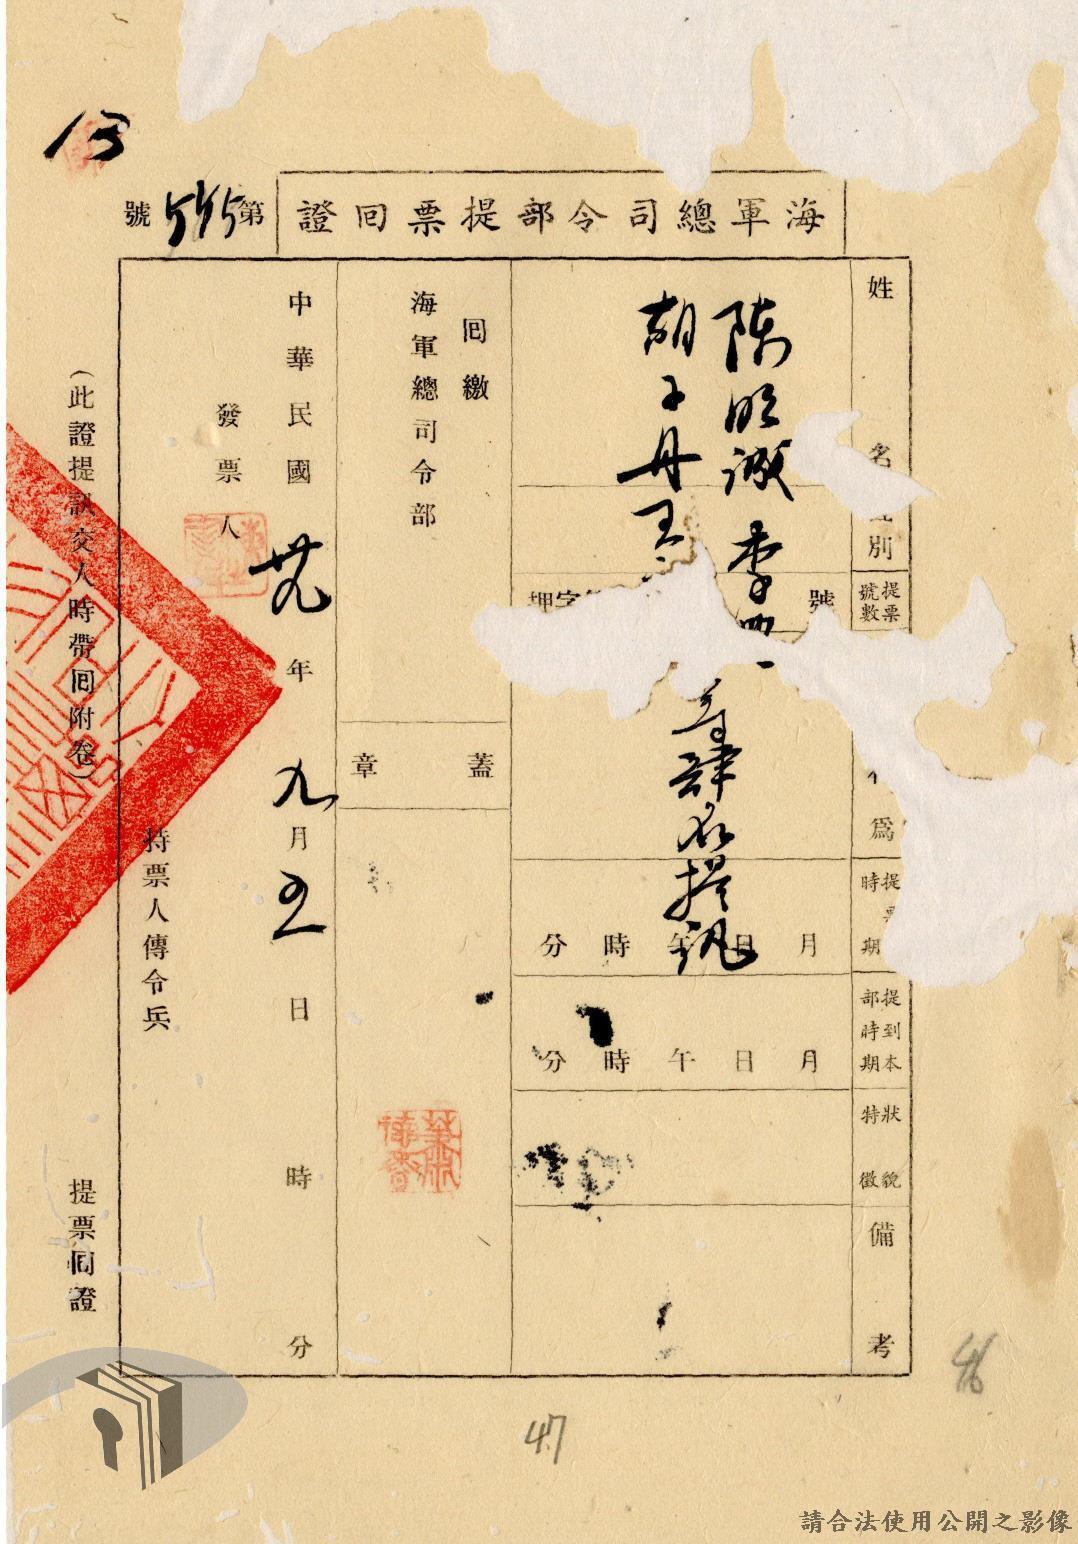 海軍總司令部提票回證
第
號
姓名
別
提票號數
為
提
時期
提到本部時期
狀貌特徵
備考
陳明誠 李
胡子丹 王
等肆名提訊
號
字
押
月 日 午 時 分
月 日 午 時 分
回繳
海軍總司令部
蓋章
中華民國卅九年九月五日 時 分
發票人
持票人傳令兵
(此證提訊交人時帶回附卷)
提票回證
13
47
46
請合法使用公開之影像